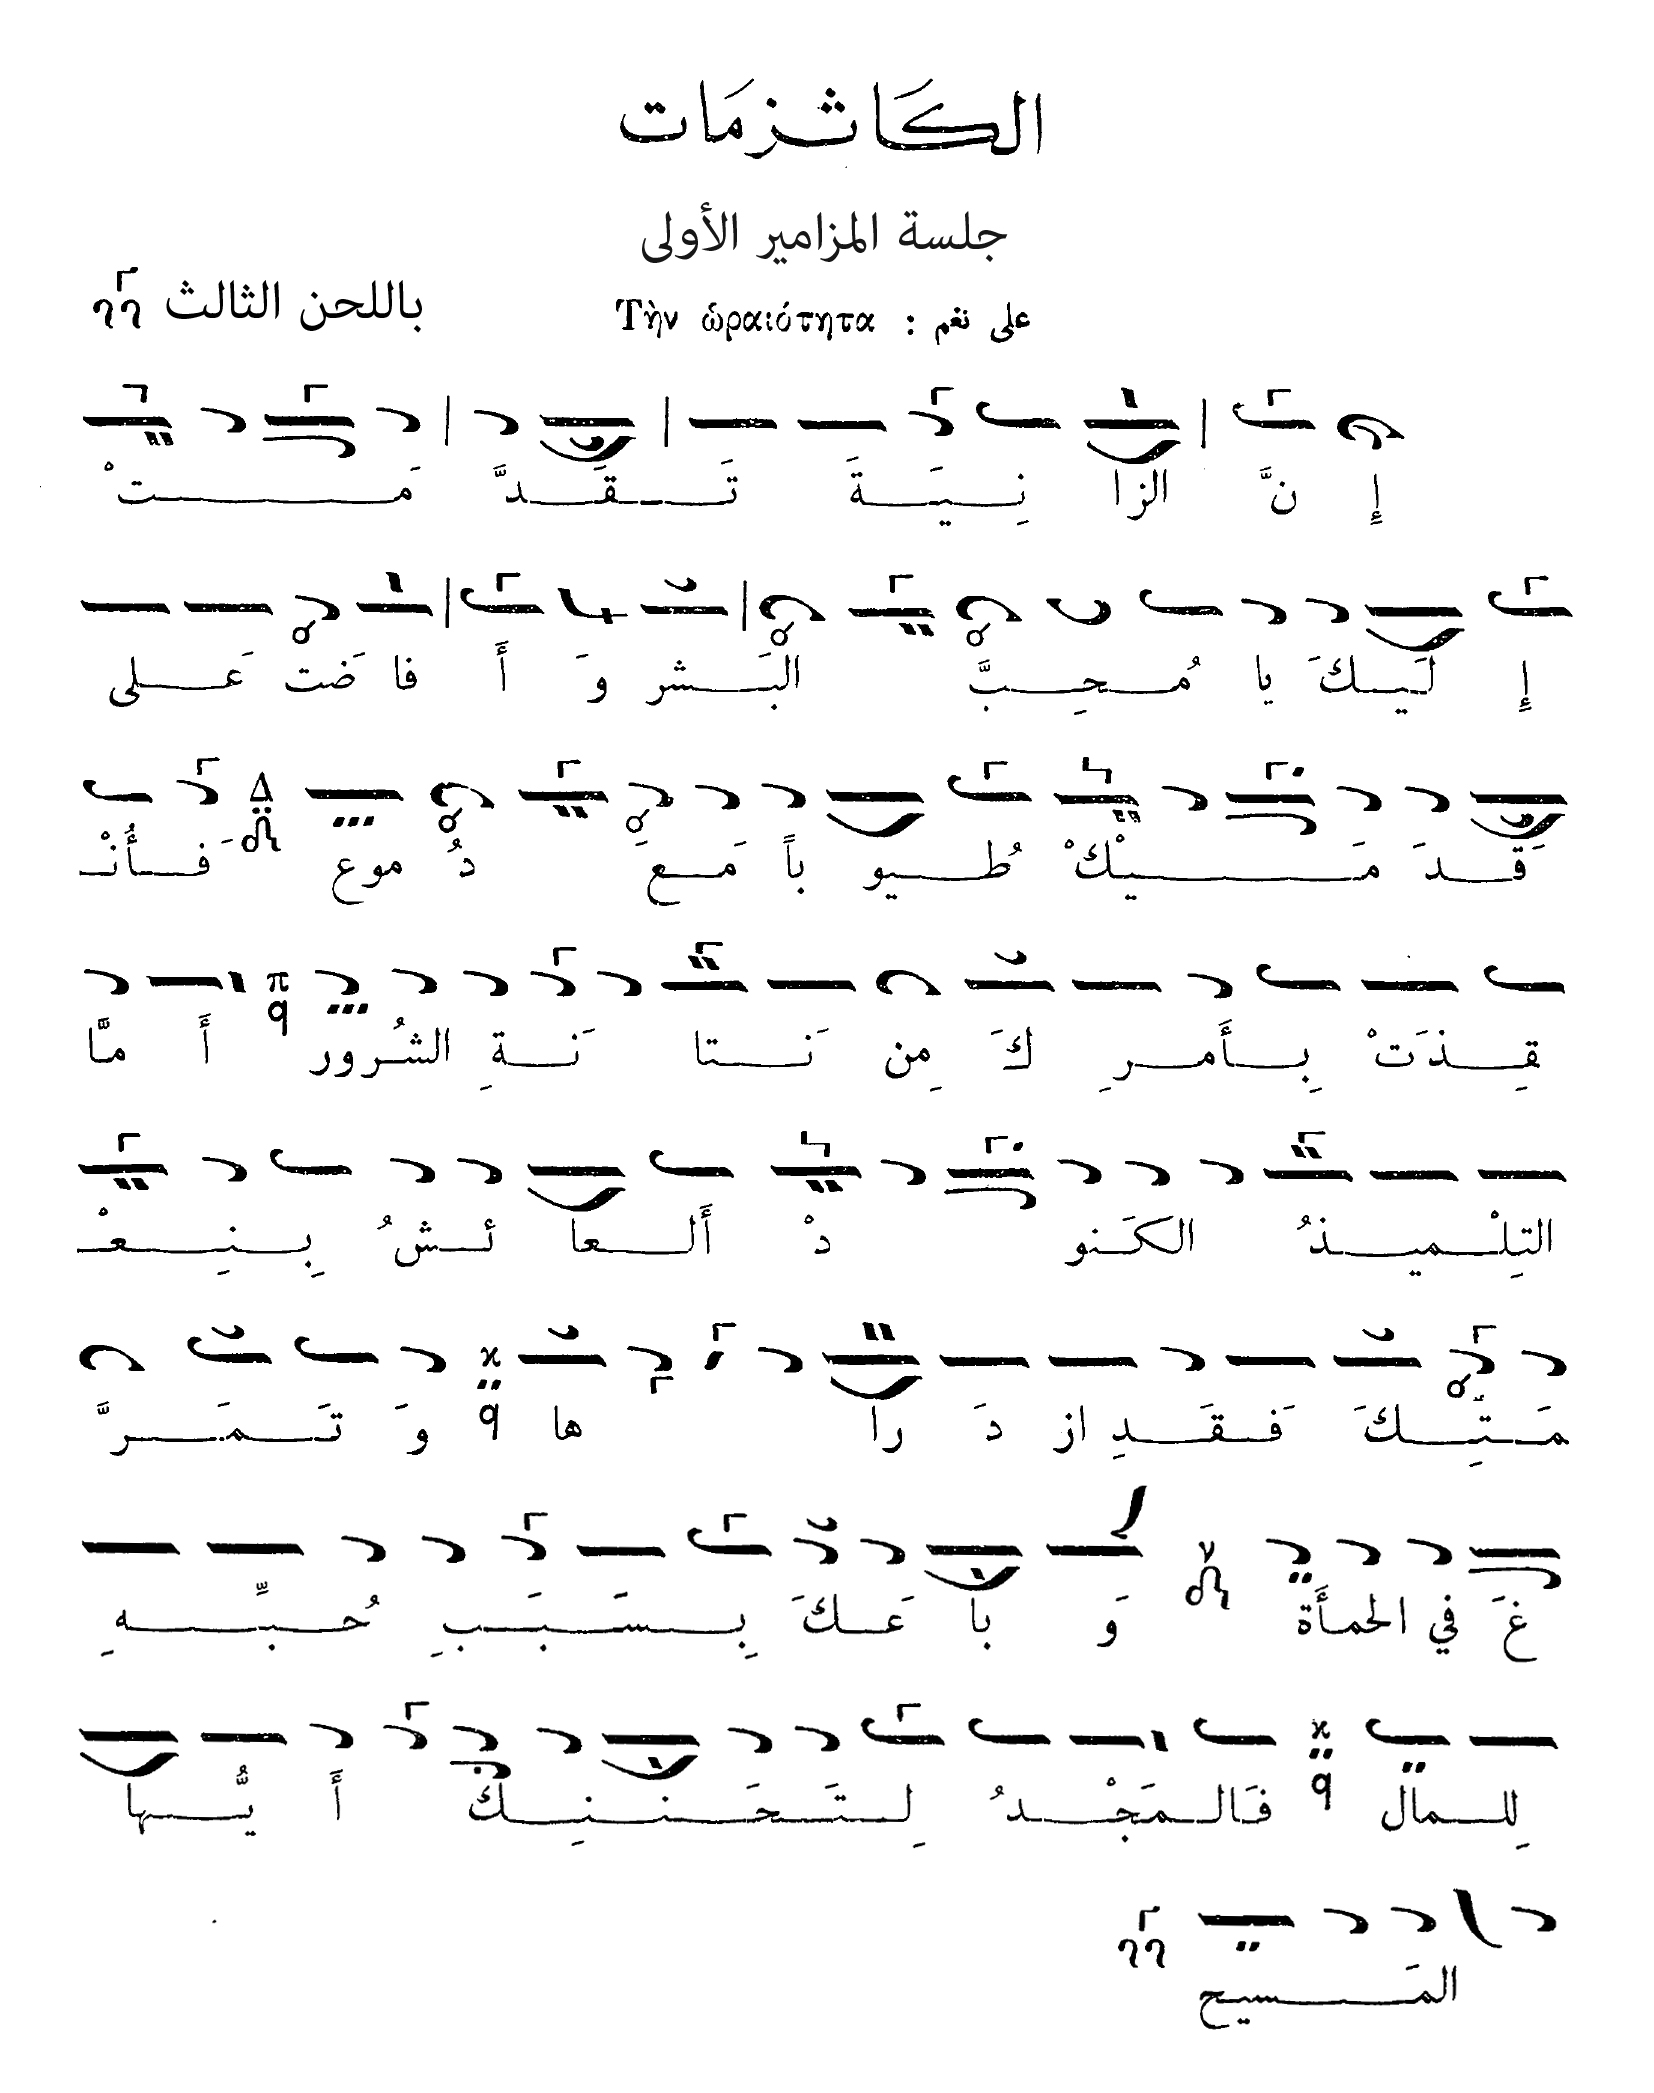 الكَاثزمَات
جلسة المزامير الأولى
على نغم : Τὴν ὡραιότητα
باللحن الثالث
إِ نَّ الزا نِيَةَ تَقَدَّمَتْ
إِ لَيكَ يا مُحِبَّ البَشر وَ أَ فاضَت عَلى
قَدَمَيْكْ طُيوباً مَعَ دُموع فَأَنْـ
ـقِذَتْ بِأَمرِ كَ مِن نَتانَةِ الشُرور أَ مَّا
التِلْميذُ الكَنودْ أَلعائشُ بِنِعْـ
ـمَتِكَ فَقَدِ ازدَراها وَ تَمَرَّ
غَ في الحمأَة وَ باعَكَ بِسَبَبِ حُبِّهِ
لِلمال فَالمَجْدُ لِتَحَنُنِكَ أَ يُّها
المَسيح